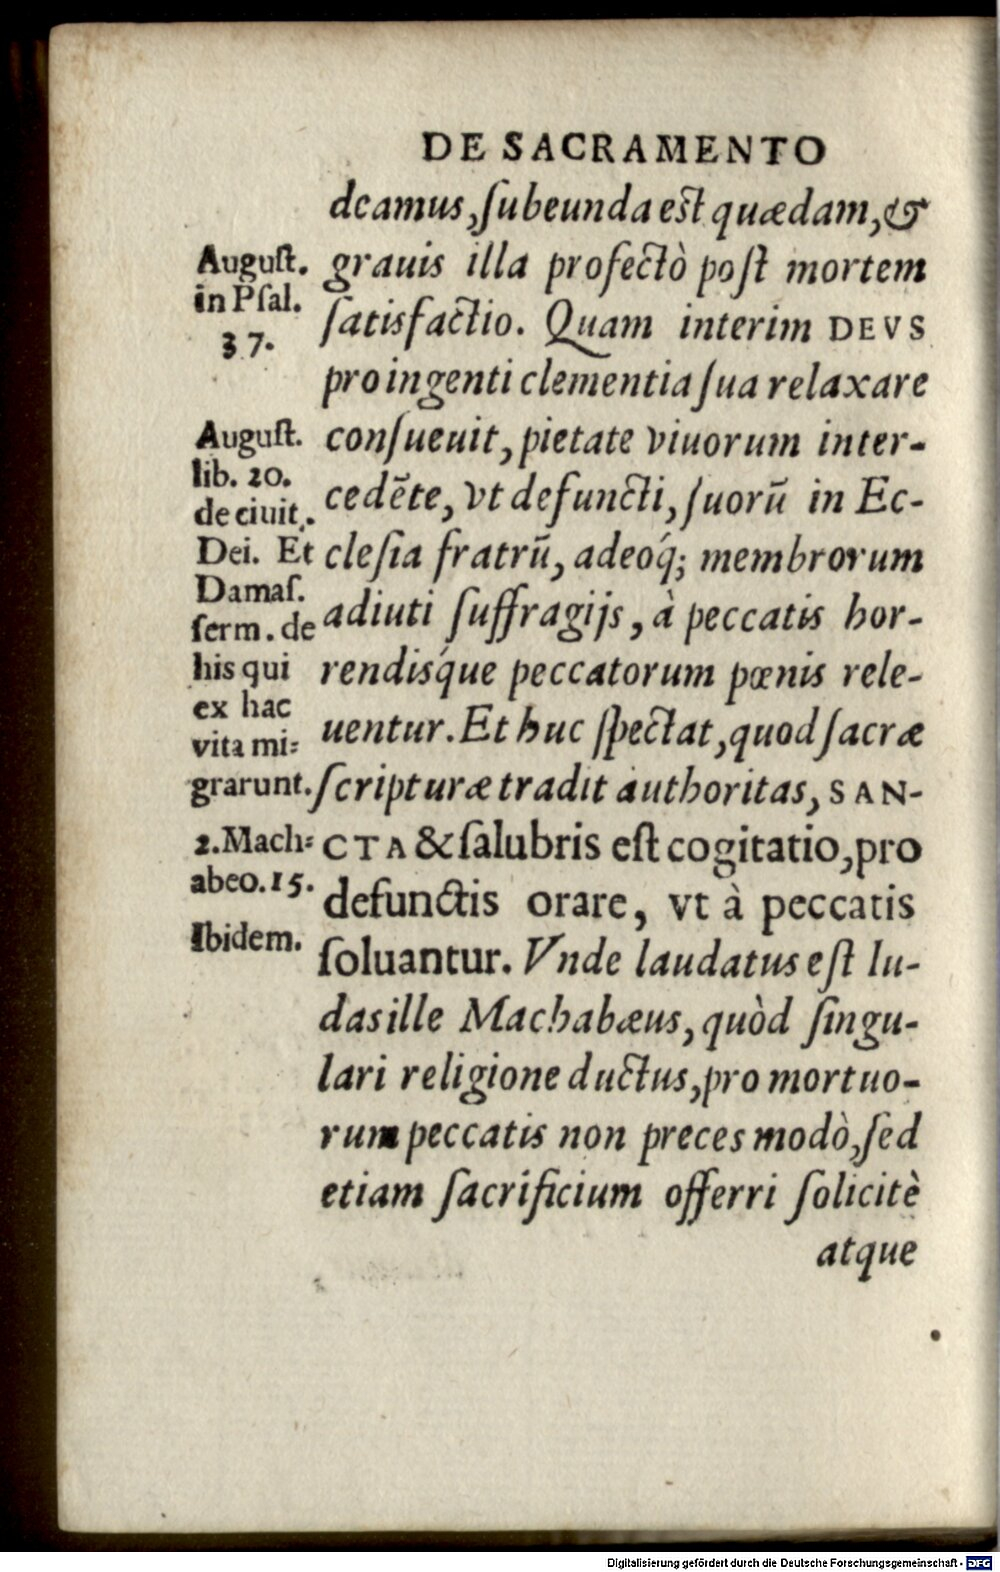 DE SACRAMENTO
deamus, ſubeunda eſt quædam, &
grauis illa profectò poſt mortem
ſatisfactio. Quam interim DEVS
pro ingenti clementia ſua relaxare
conſueuit, pietate viuorum inter-
cedēte, vt defuncti, ſuorū in Ec-
cleſia fratrū, adeoq́; membrorum
adiuti ſuffragijs, à peccatis hor-
rendisq́ue peccatorum pœnis rele-
uentur. Et huc ſpectat, quod ſacræ
ſcripturæ tradit authoritas, SAN-
CTA & ſalubris eſt cogitatio, pro
defunctis orare, vt à peccatis
ſoluantur. Vnde laudatus eſt Iu-
das ille Machabæus, quòd ſingu-
lari religione ductus, pro mortuo-
rum peccatis non preces modò, ſed
etiam ſacrificium offerri ſolicitè
atque
Auguſt.
in Pſal.
37.
Auguſt.
lib. 20.
de ciuit.
Dei. Et
Damaſ.
ſerm. de
his qui
ex hac
vita mi=
grarunt.
2. Mach=
abeo. 15.
Ibidem.
Digitalisierung gefördert durch die Deutsche Forschungsgemeinschaft - DFG